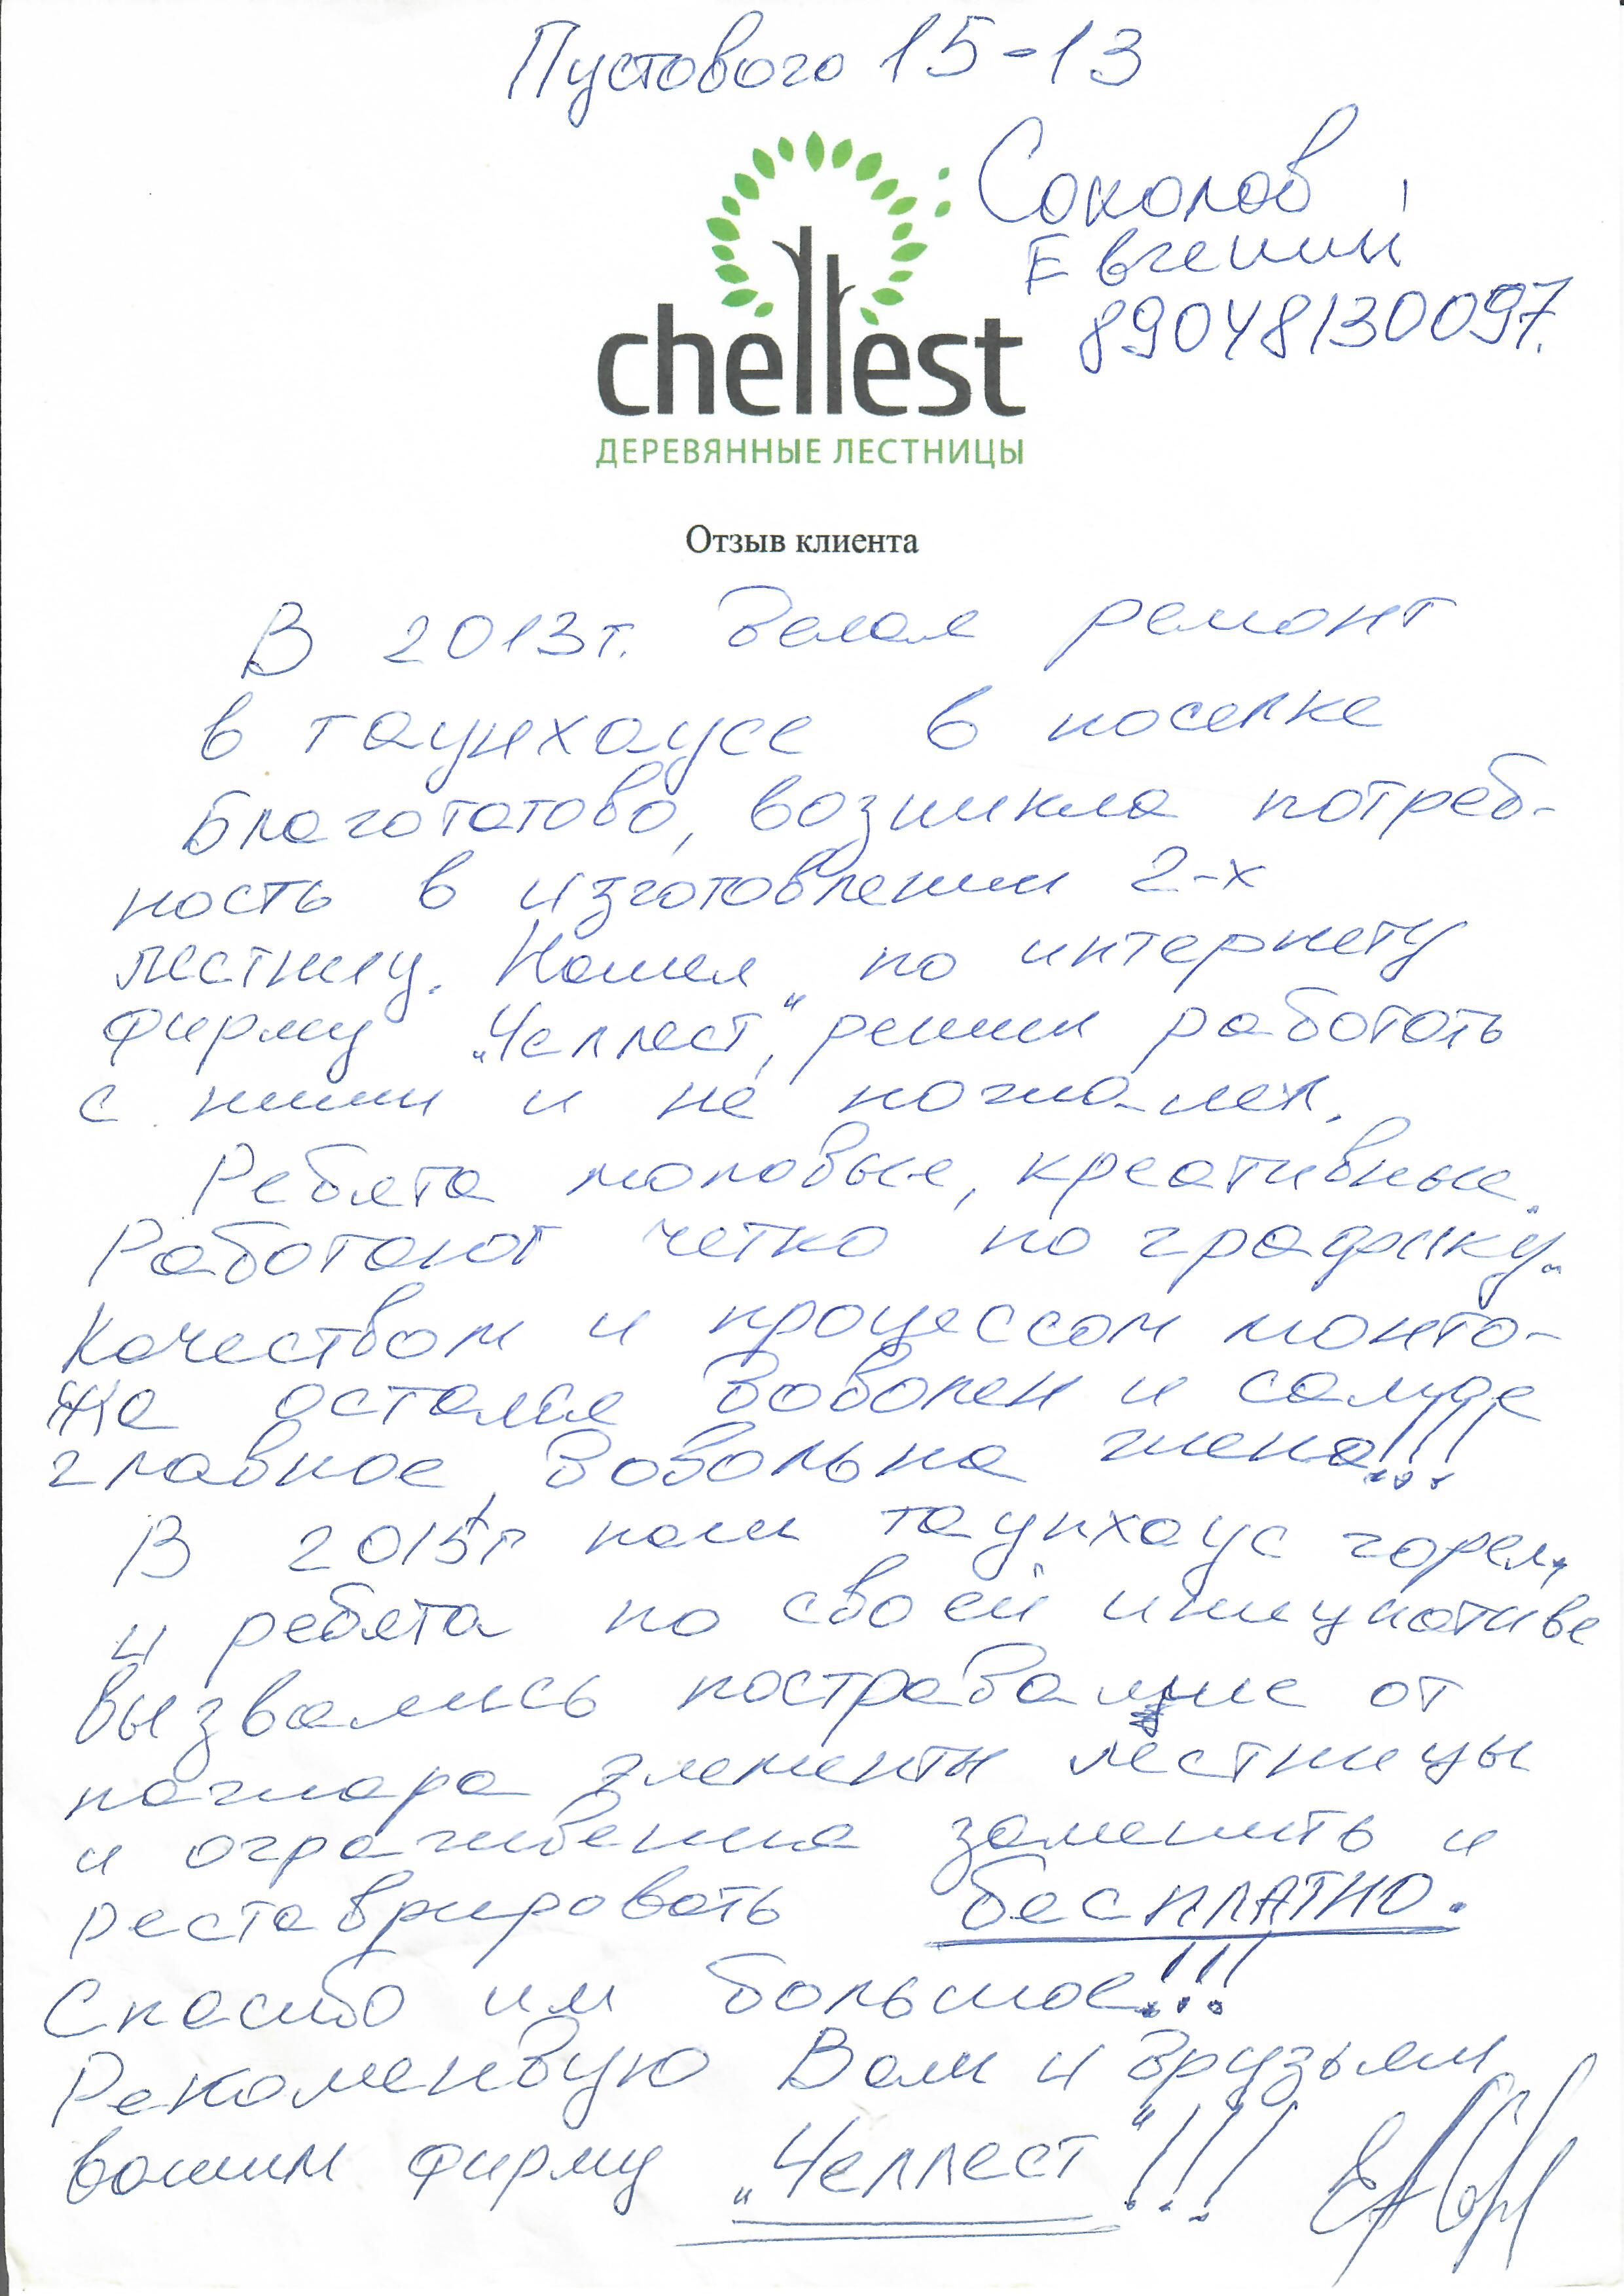 Пустового 15-13
Соколов
Евгений
89048130097.
chellest
ДЕРЕВЯННЫЕ ЛЕСТНИЦЫ
Отзыв клиента
В 2013г. делал ремонт
в таунхаусе в поселке
Благодатово, возникла потреб-
ность в изготовлении 2-х
лестниц. Нашел по интернету
фирму „Челлест", решил работать
с ними и не пожалел.
Ребята толковые, креативные.
Работают четко по графику.
Качеством и процессом монта-
жа остался доволен и самое
главное, довольна жена!!!
В 2015г наш таунхаус горел,
и ребята по своей инициативе
вызвались пострадавшие от
пожара элементы лестницы
и ограждения заменить и
реставрировать бесПЛАТНО.
Спасибо им большое!!!
Рекомендую Вам и друзьям
вашим фирму „Челлест"!!!